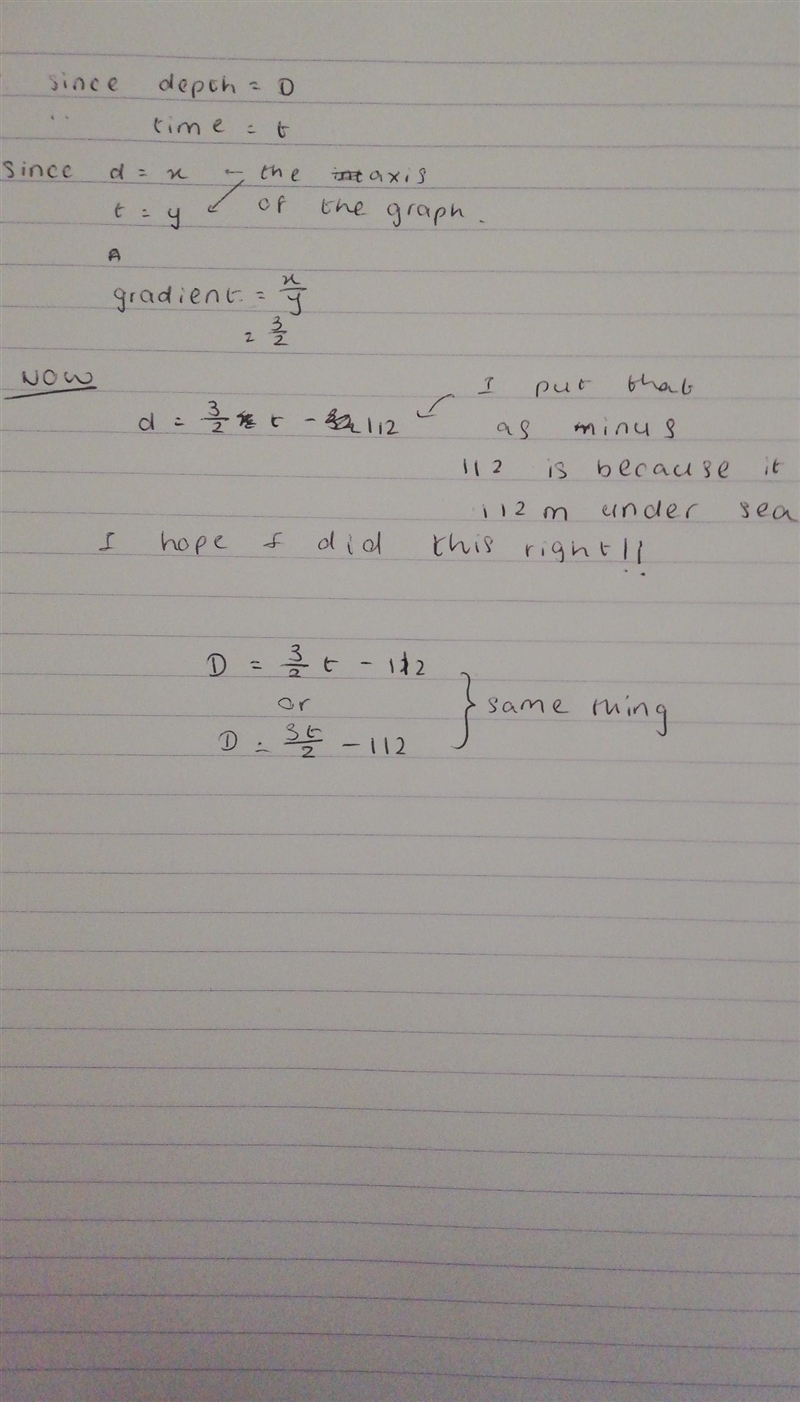 since depth = D
" time = t
since d = x ← the axis
t = y ↙ of the graph.
A
gradient = x/y
= 3/2
NOW
d = 3/2 t - 112 ↙ I put that
as minus
112 is because it
112m under sea
I hope I did this right!!
D = 3/2 t - 112
or
D = 3t/2 - 112
} same thing